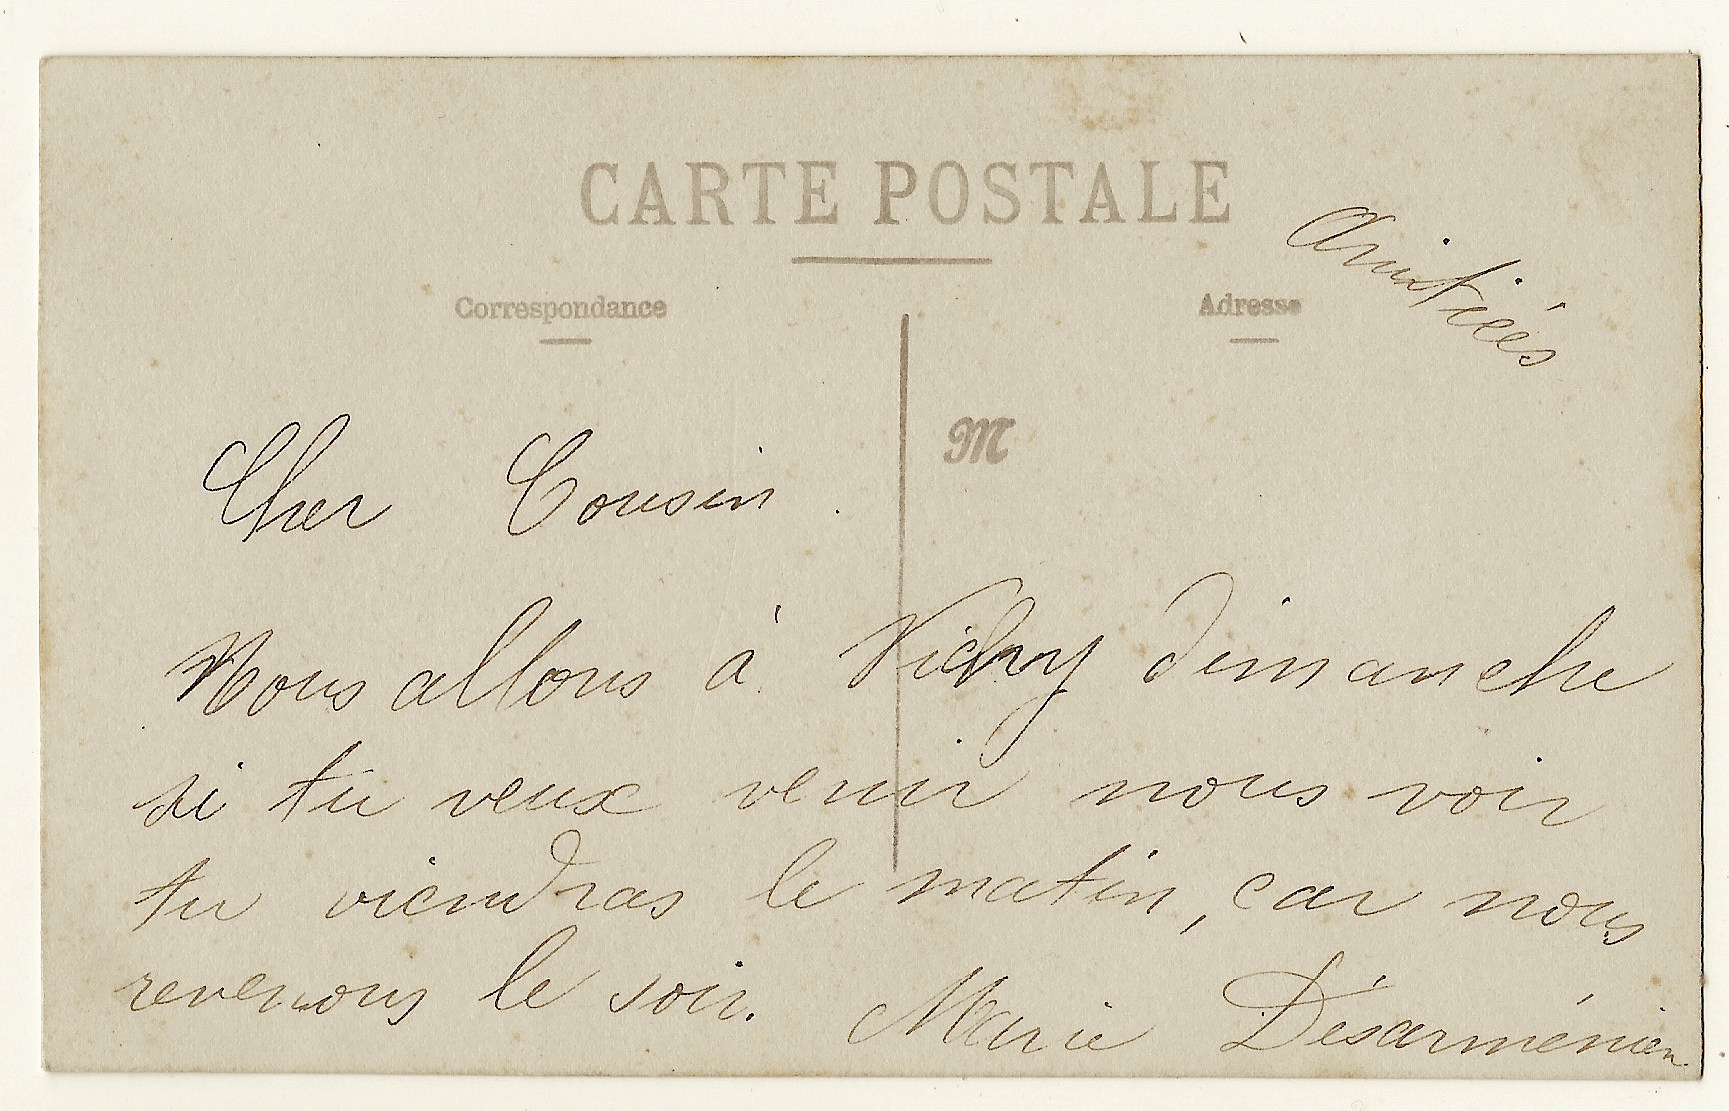 CARTE POSTALE
Correspondance
Adresse
Amitiés
M
Cher Cousin.
Nous allons à Vichy dimanche
si tu veux venir nous voir
tu viendras le matin, car nous
revenons le soir. Marie Désarménien